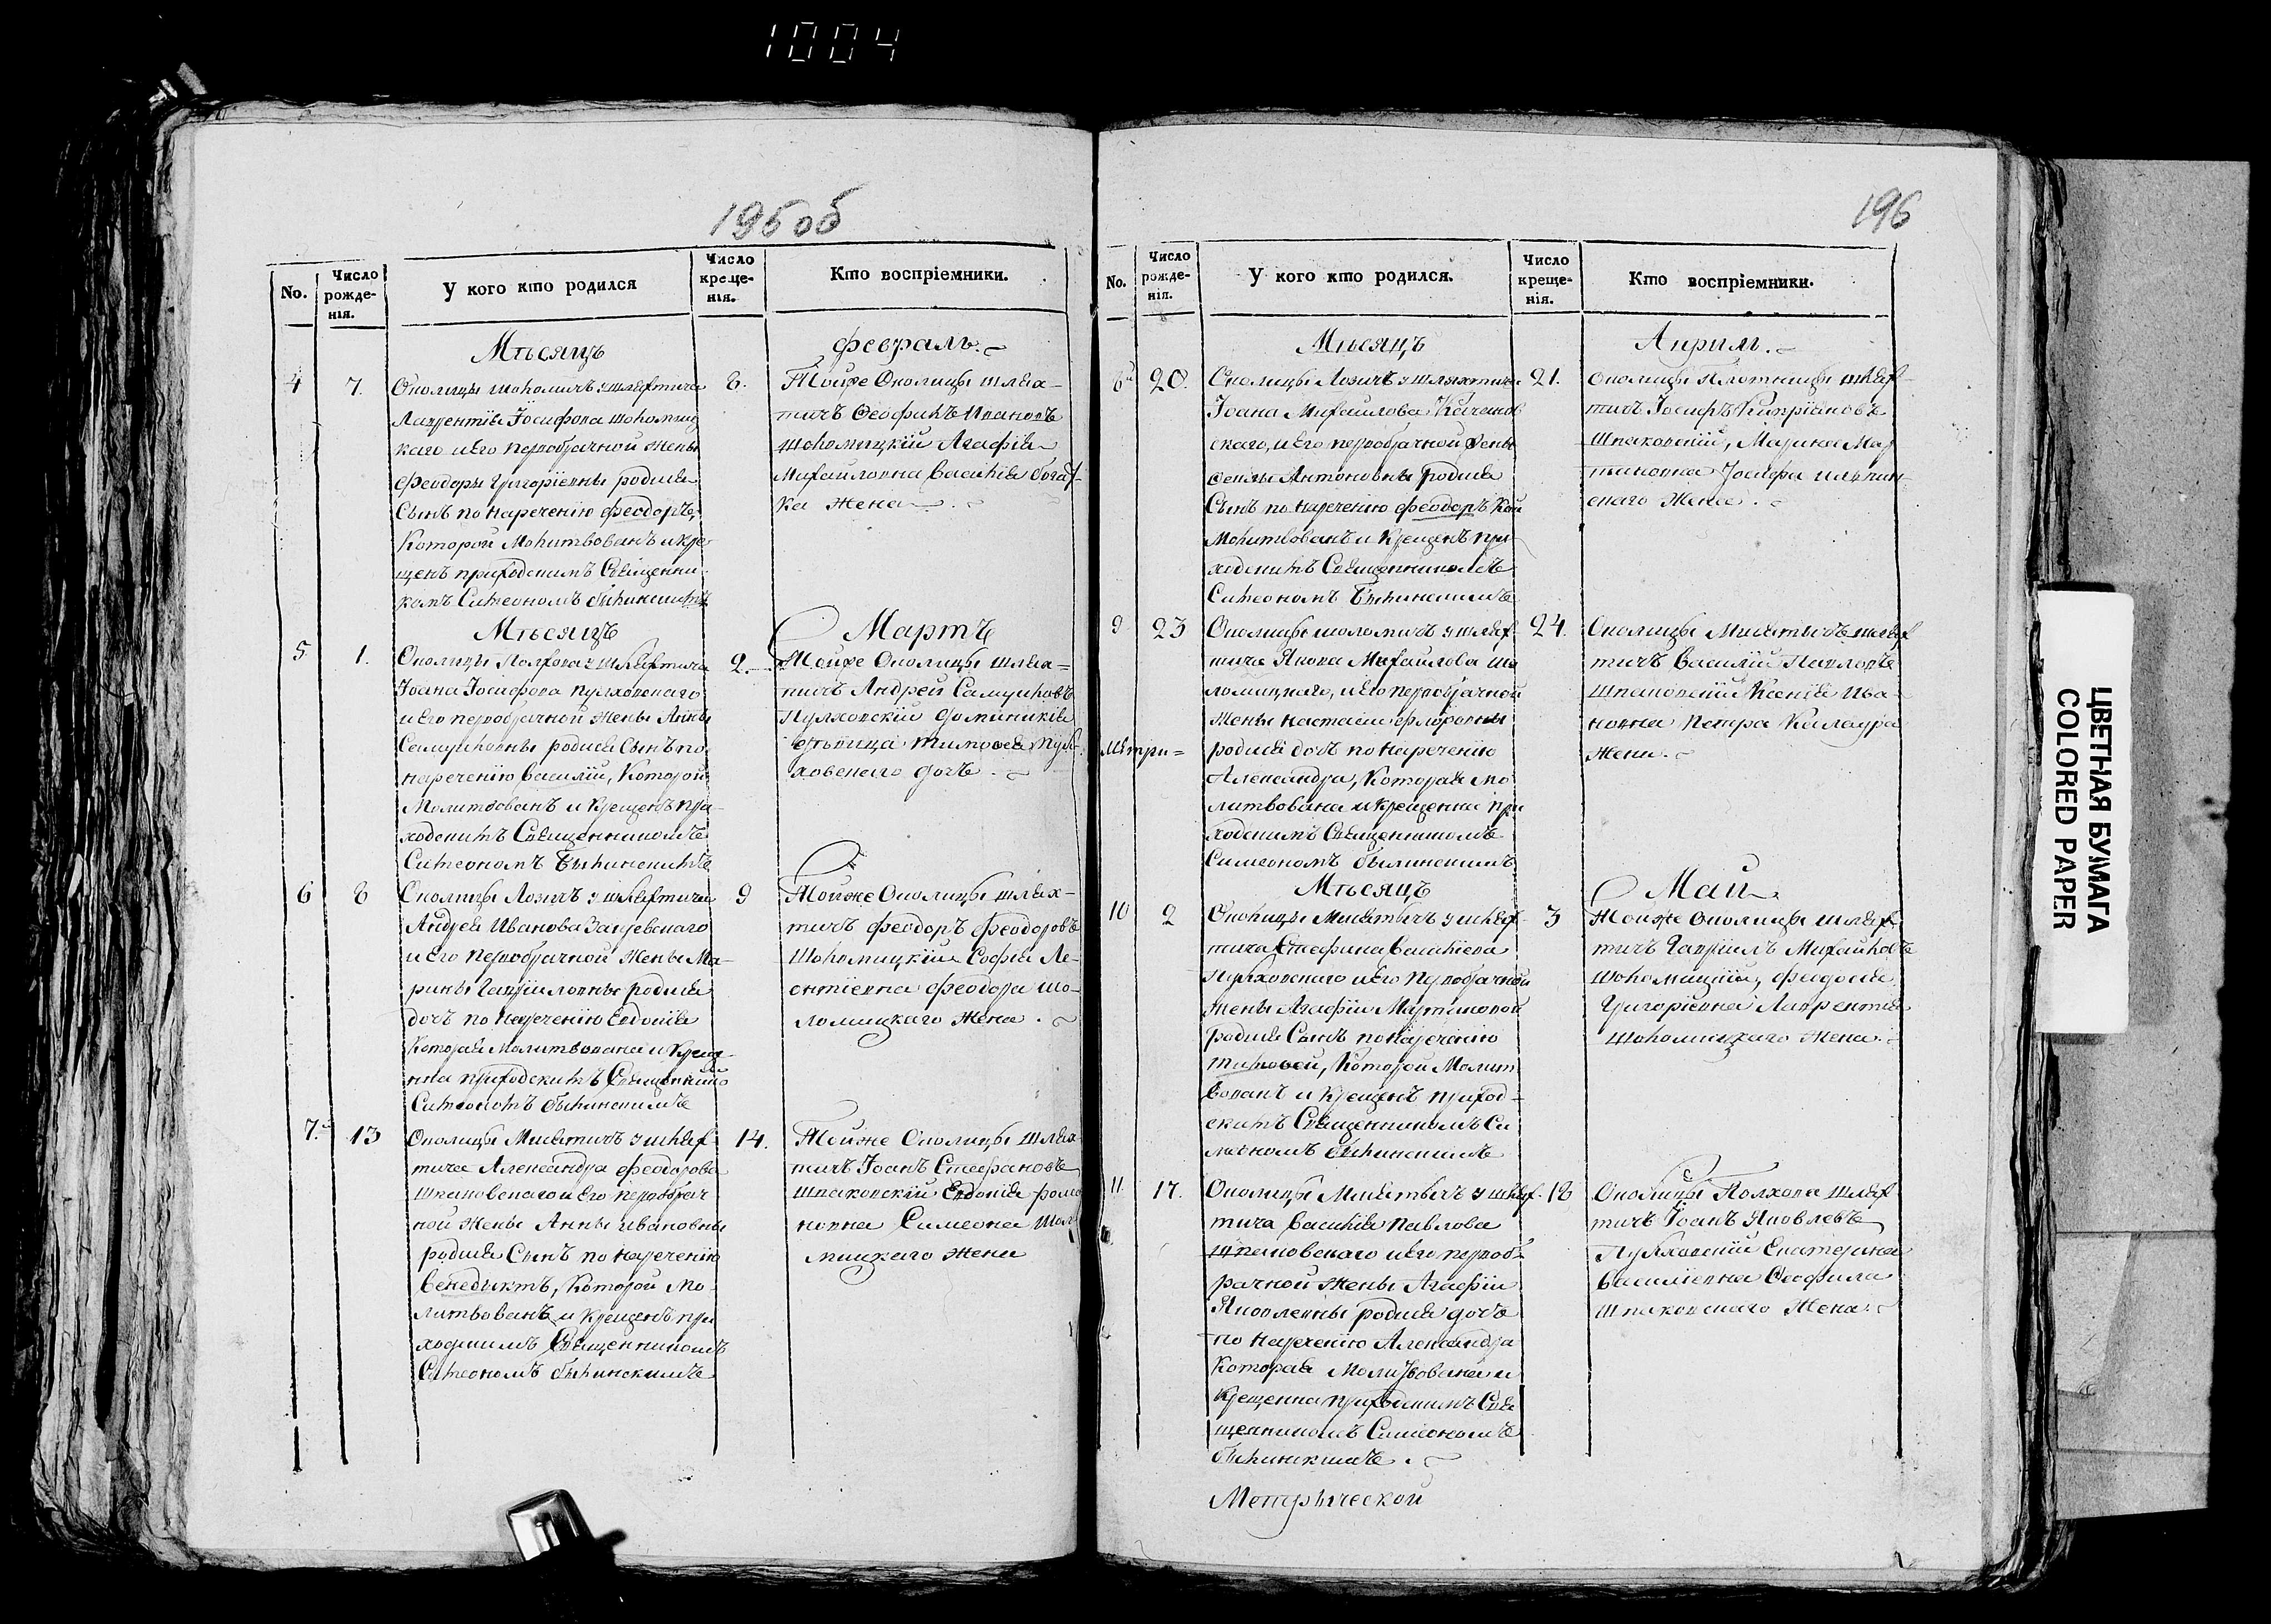 1004
195 об
No.
Число рожде-нія.
У кого кто родился
Число креще-нія.
Кто воспріемники.
Мѣсяцъ
февраль.
4
7.
Околицы Шоломичъ у шляхтича
Лаврентія Іосифова Шоломиц
каго и его первобрачной жены
Феодоры Григоріевны родися
Сынъ по наречению Феодоръ,
Которой Молитвованъ и кре
щенъ приходскимъ Священни
комъ Симеономъ Былинскимъ
8.
Тойже Околицы шлях-
тичъ Феофилъ Ивановъ
Шоломицкій Агафія
Михайловна Василія
ка жена
Мѣсяцъ
Мартъ
5
1.
Околицы Полхова у шляхтича
Іоана Іосифова Пулховскаго
и его первобрачной жены Анны
Самуиловны родися Сынъ по
наречению Василій, Которой
Молитвованъ и крещенъ при
ходскимъ Священникомъ
Симеономъ Былинскимъ
2.
Тойже Околицы шлях-
тичъ Андрей Самуиловъ
Пулховскій Доминикія
дѣвица Тимофея Пул
ховскаго дочь
6
8
Околицы Лозичъ у шляхтича
Андрея Иванова
и его первобрачной жены Ма-
рины Гавриловны родися
дочь по наречению Евдокія
Которая Молитвована и крещен
нна приходскимъ Священнико
Симеономъ Былинскимъ
9
Тойже Околицы шлях-
тичъ Феодоръ Феодоровъ
Шоломицкій Софія Ле-
онтіевна Феодора Шо-
ломицкаго жена
7.
13
Околицы Мисятичъ у шлях
тича Александра Феодорова
Шпаковскаго и его первобрач
ной жены Анны Ивановны
родися Сынъ по наречению
Венедыктъ, Которой Мо-
литвованъ и крещенъ при
ходскимъ Священникомъ
Симеономъ Былинскимъ
14.
Тойже Околицы шлях
тичъ Іоанъ Стефановъ
Шпаковскій Евдокія Рома
новна Симеона Шоло
мицкаго жена
196
No.
Число рожде-нія.
У кого кто родился.
Число креще-нія.
Кто воспріемники.
Мѣсяцъ
Априль.
8
20.
Околицы Лозичъ у шляхтича
Іоана Михайлова Качанов
скаго, и его первобрачной жены
Антоновны родися
Сынъ по наречению Феодоръ Кой
Молитвованъ и крещенъ при
ходскимъ Священникомъ
Симеономъ Былинскимъ
21.
Околицы Плотницы шлях
тичъ Іосифъ Кипріановъ
Шпаковскій, Марина Мар
тиновна Іосифа
скаго жена
9
23
Околицы Шоломичъ у шлях
тича Якова Михайлова Шо
ломицкаго, и его первобрачной
жены Настасіи
родися дочь по наречению
Александра, Которая Мо
литвована и крещенна при
ходскимъ Священникомъ
Симеономъ Былинскимъ
24.
Околицы Мисятычъ шлях
тичъ Василій Павловъ
Шпаковскій Ксенія Ива-
новна Петра
жена
Метри=
Мѣсяцъ
Май
10
2
Околицы Мисятычъ у шлях
тича Стефана Василіева
Пулховскаго и его первобрачной
жены Агафіи Мартиновой
родися Сынъ по наречению
Тимофей, Которой Молит
вованъ и крещенъ приход-
скимъ Священникомъ Си
меономъ Былинскимъ
3
Тойже Околицы шлях
тичъ Гавріилъ Михайловъ
Шоломицкій, Феодосія
Григоріевна Лаврентія
Шоломицкаго жена
11
17.
Околицы Мисятычъ у шлях
тича Василія Павлова
Шпаковскаго и его первоб
рачной жены Агафіи
Яковлевны родися дочь
по наречению Александра
Которая Молитвована и
крещенна приходскимъ Свя
щенникомъ Симеономъ
Былинскимъ.
18
Околицы Полхова шлях
тичъ Іоанъ Яковлевъ
Пулховскій Екатерина
Василіевна Феофила
Шпаковскаго жена
Метрической
ЦВЕТНАЯ БУМАГА
COLORED PAPER